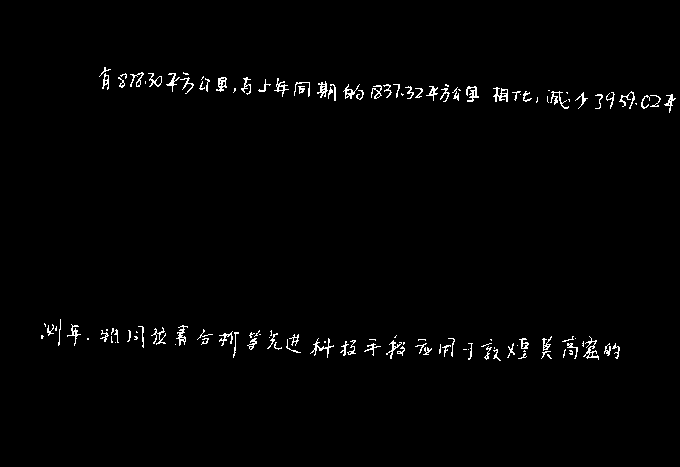 有878.30平方公里,与上年同期的1837.32平方公里相比,减少3959.02平
测年、铅同位素分析等先进科技手段应用于敦煌莫高窟的